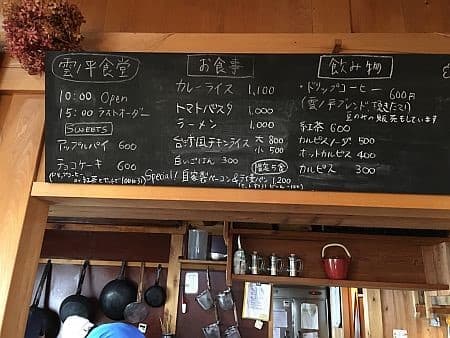 雲ノ平食堂
10:00 Open
15:00 ラストオーダー
SWEETS
アップルパイ 600
チョコケーキ 600
お食事
カレーライス 1,100
トマトパスタ 1,000
ラーメン 1,000
台湾風チキンライス 大 800
小 500
白いごはん 300
限定5食
Special! 自家製ベーコン& 1,200
飲み物
・ドリップコーヒー 600円
(雲ノ平ブレンド 焼きたて!)
豆のみの販売もしています
紅茶 600
カルピスソーダ 500
ホットカルピス 400
カルピス 300